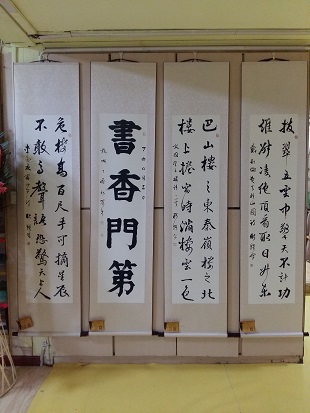 拔翠五雲中擎天不計功
誰能凌絕頂看取日升東
巴山樓之東秦嶺樓之北
樓上捲簾時滿樓雲一色
書香門第
危樓高百尺手可摘星辰
不敢高聲語恐驚天上人